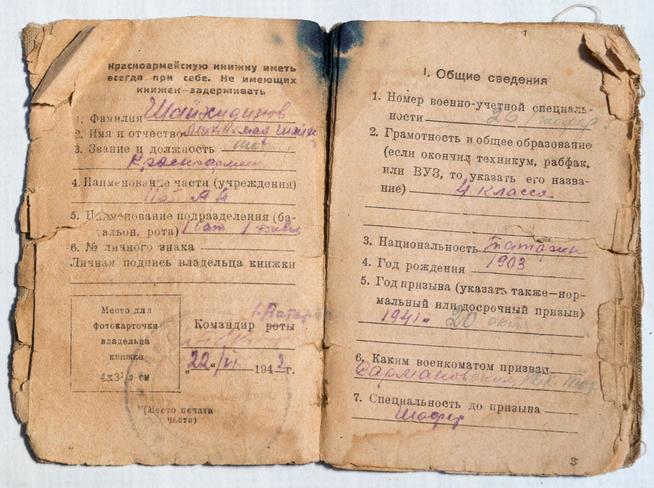 Красноармейскую книжку иметь
всегда при себе. Не имеющих
книжек—задерживать
1. Фамилия Шайхидинов
2. Имя и отчество
3. Звание и должность
Красноармеец
4. Наименование части (учреждения)
5. Наименование подразделения (ба-
тальон, рота) 1 бат 1
6. № личного знака
Личная подпись владельца книжки
Место для
фотокарточки
владельца
книжки
4×3½ см
Командир роты
„22“ VI 1942 г.
(Место печати
части)
1
I. Общие сведения
1. Номер военно-учетной специаль-
ности 26
2. Грамотность и общее образование
(если окончил техникум, рабфак.
или ВУЗ, то указать его назва-
ние) 4 класса
3. Национальность Татарин
4. Год рождения 1903
5. Год призыва (указать также—нор-
мальный или досрочный призыв)
1941 г. 20 окт
6. Каким военкоматом призван
Сармановским РВК
7. Специальность до призыва
Шофер
3